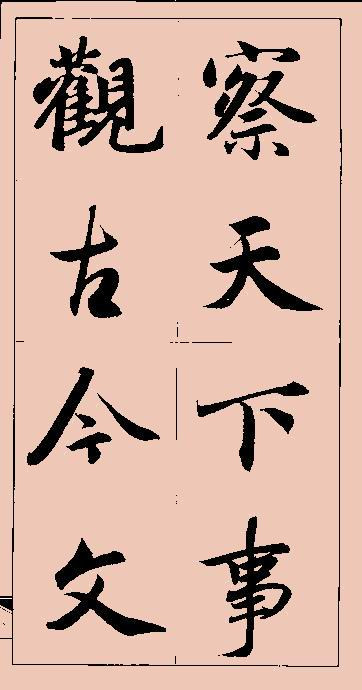 察天下事
觀古今文